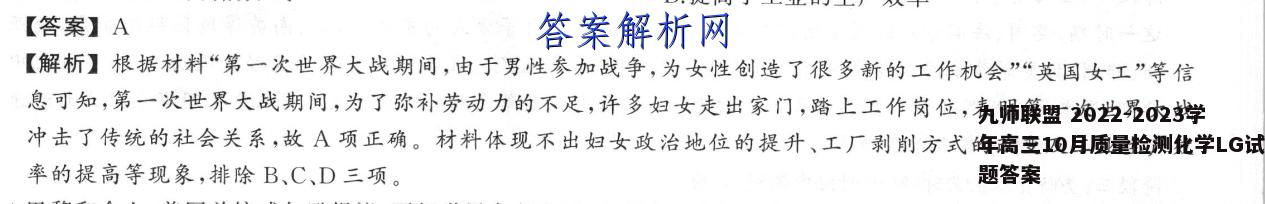 【答案】A
答案解析网
【解析】根据材料“第一次世界大战期间,由于男性参加战争,为女性创造了很多新的工作机会”“英国女工”等信
息可知,第一次世界大战期间,为了弥补劳动力的不足,许多妇女走出家门,踏上工作岗位,
冲击了传统的社会关系,故 A 项正确。材料体现不出妇女政治地位的提升、工厂剥削方式的
率的提高等现象,排除 B、C、D 三项。
九师联盟 2022-2023学
年高三10月质量检测化学LG试
题答案